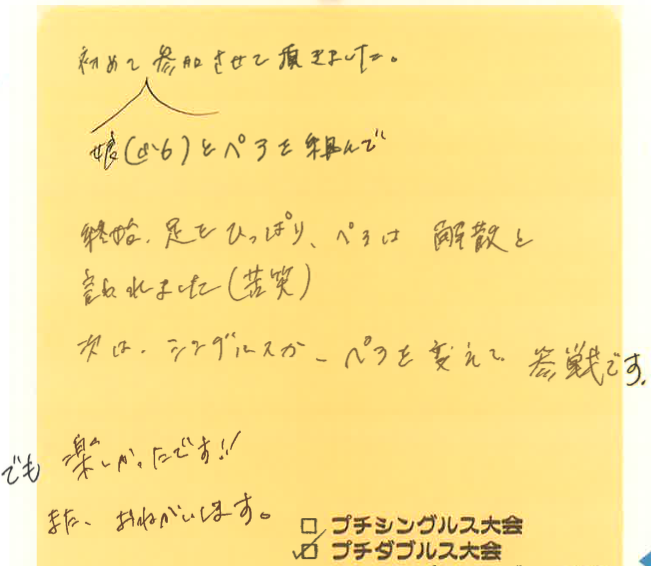 初めて参加させて頂きました。
娘(小6)とペアを組んで
終始、足をひっぱり、ペアは解散と
言われました(苦笑)
次は、シングルスか、ペアを変えて参戦です。
でも楽しかったです!!
また、おねがいします。
□ プチシングルス大会
☑ プチダブルス大会